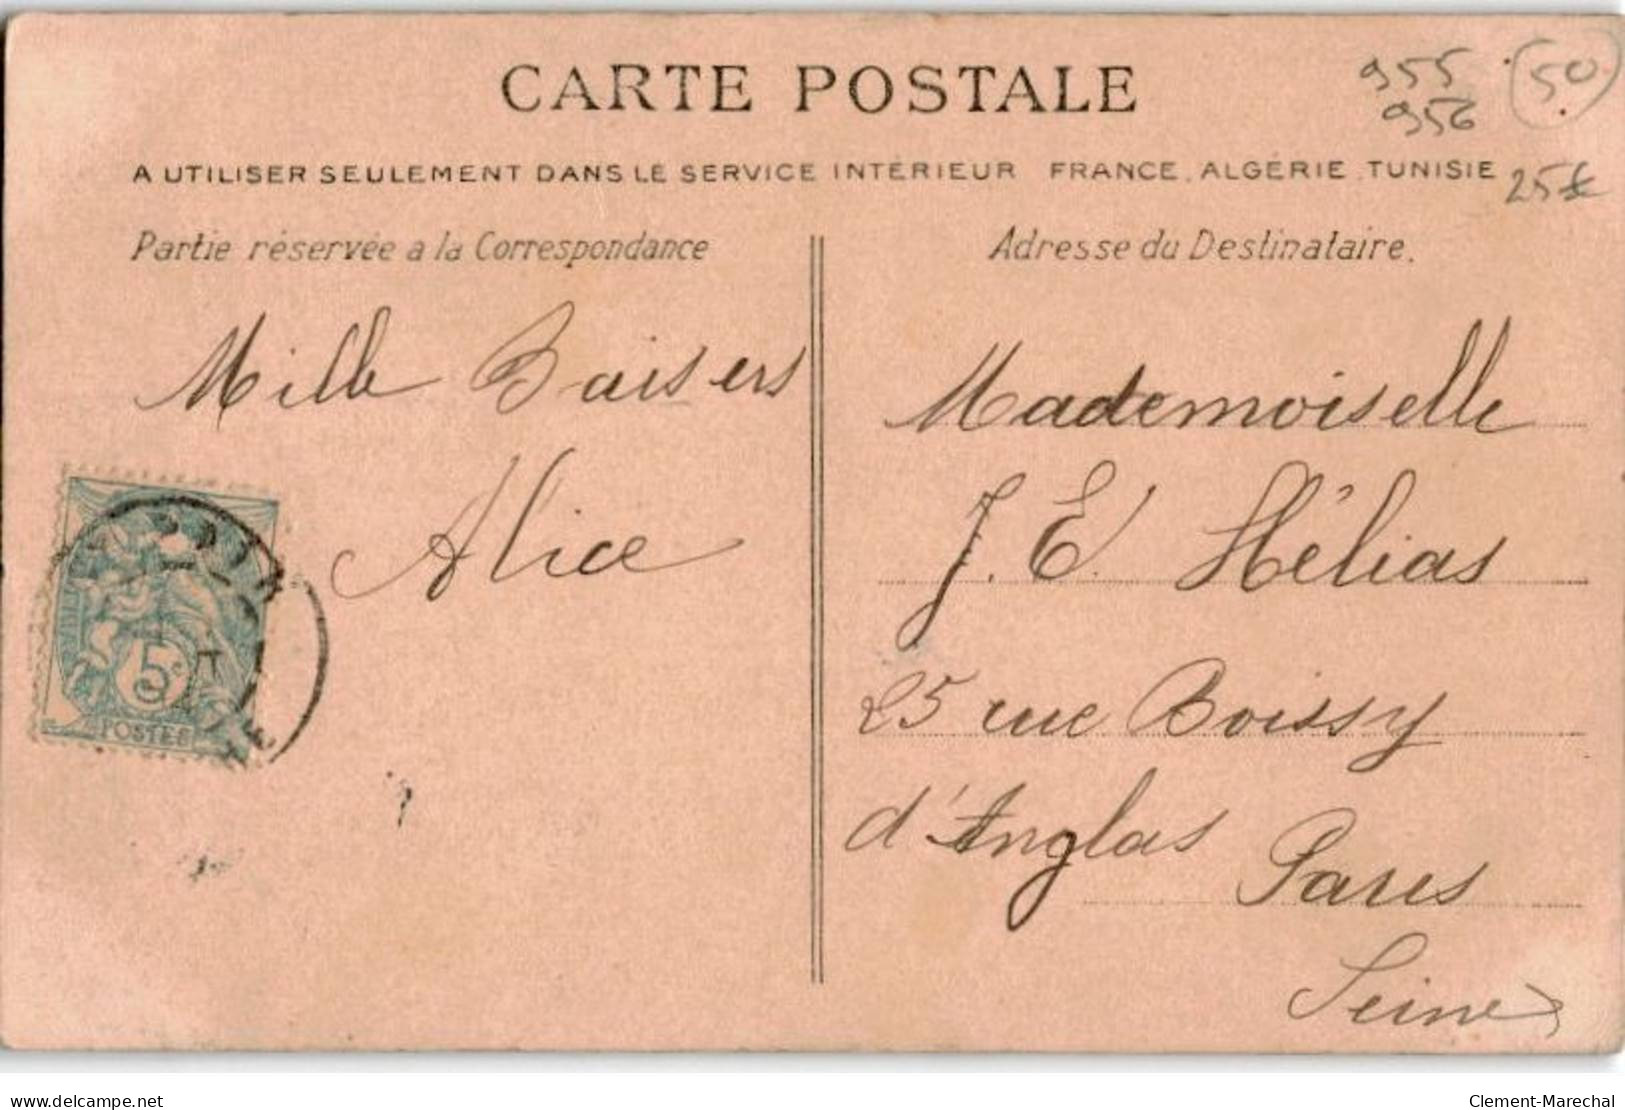 CARTE POSTALE
955
956
50
A UTILISER SEULEMENT DANS LE SERVICE INTÉRIEUR FRANCE, ALGÉRIE, TUNISIE
25£
Partie réservée a la Correspondance
Adresse du Destinataire.
Mille Baisers
Alice
5c
POSTES
Mademoiselle
J. E. Hélias
25 rue Boissy
d'Anglas Paris
Seine
delcampe.net
Clement-Marechal